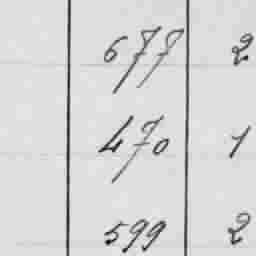 677 2
470 1
599 2